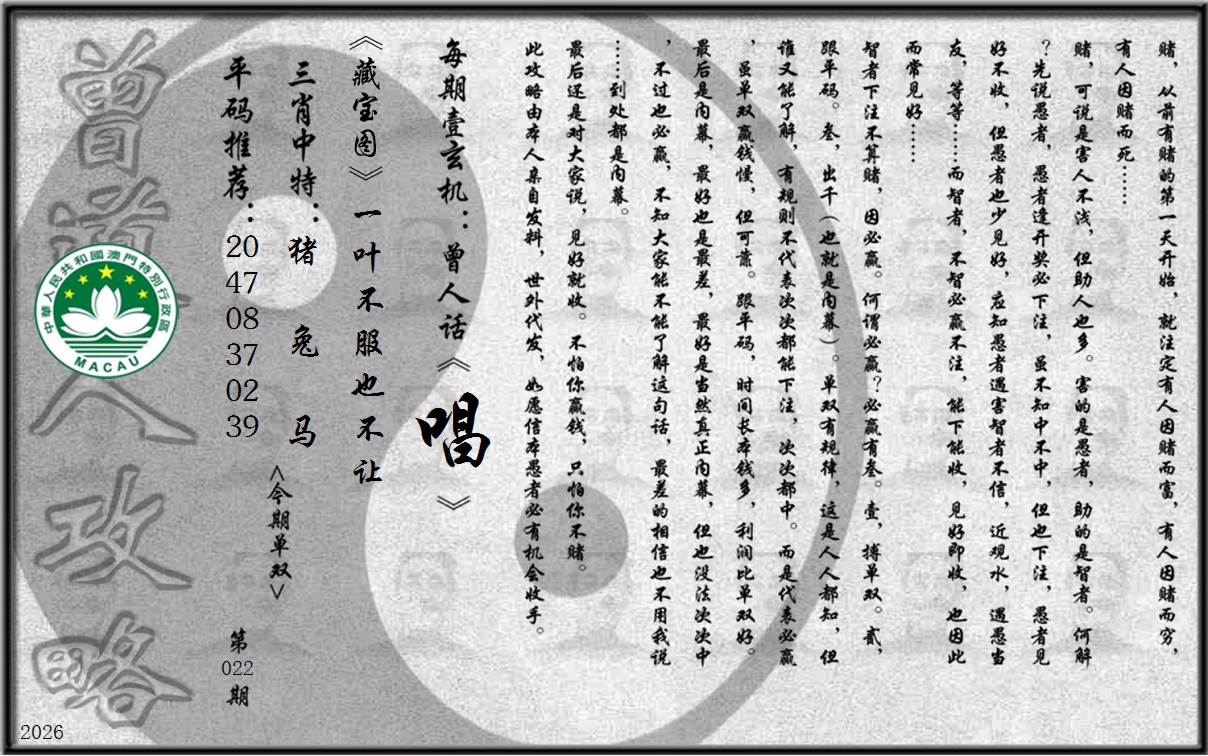 赌，从前有赌的第一天开始，就注定有人因赌而富，有人因赌而穷，
有人因赌而死……
赌，可说是害人不浅，但助人也多。害的是愚者，助的是智者。何解
？先说愚者，愚者逢开奖必下注，虽不知中不中，但也下注，愚者见
好不收，但愚者也少见好，应知愚者遇害智者不信，近观水，遇愚当
友，等等……而智者，不智必赢不注，能下能收，见好即收，也因此
而常见好……
智者下注不算赌，因必赢。何谓必赢？必赢有叁。壹，搏单双。贰，
跟平码。叁，出千（也就是内幕）。单双有规律，这是人人都知，但
谁又能了解，有规则不代表次次都能下注，次次都中。而是代表必赢
，虽单双赢钱慢，但可靠。跟平码，时间长本钱多，利润比单双好。
最后是内幕，最好也是最差，最好是当然真正内幕，但也没法次次中
，不过也必赢，不知大家能不能了解这句话，最差的相信也不用我说
……到处都是内幕。
最后还是对大家说，见好就收。不怕你赢钱，只怕你不赌。
此攻略由本人亲自发料，世外代发，如愿信本愚者必有机会收手。
每期壹玄机：曾人话《唱》
《藏宝图》一叶不服也不让
三肖中特：猪 兔 马
<今期单双>
平码推荐：20 47 08 37 02 39
第022期
曾道人攻略
中華人民共和國澳門特別行政區
MACAU
2026